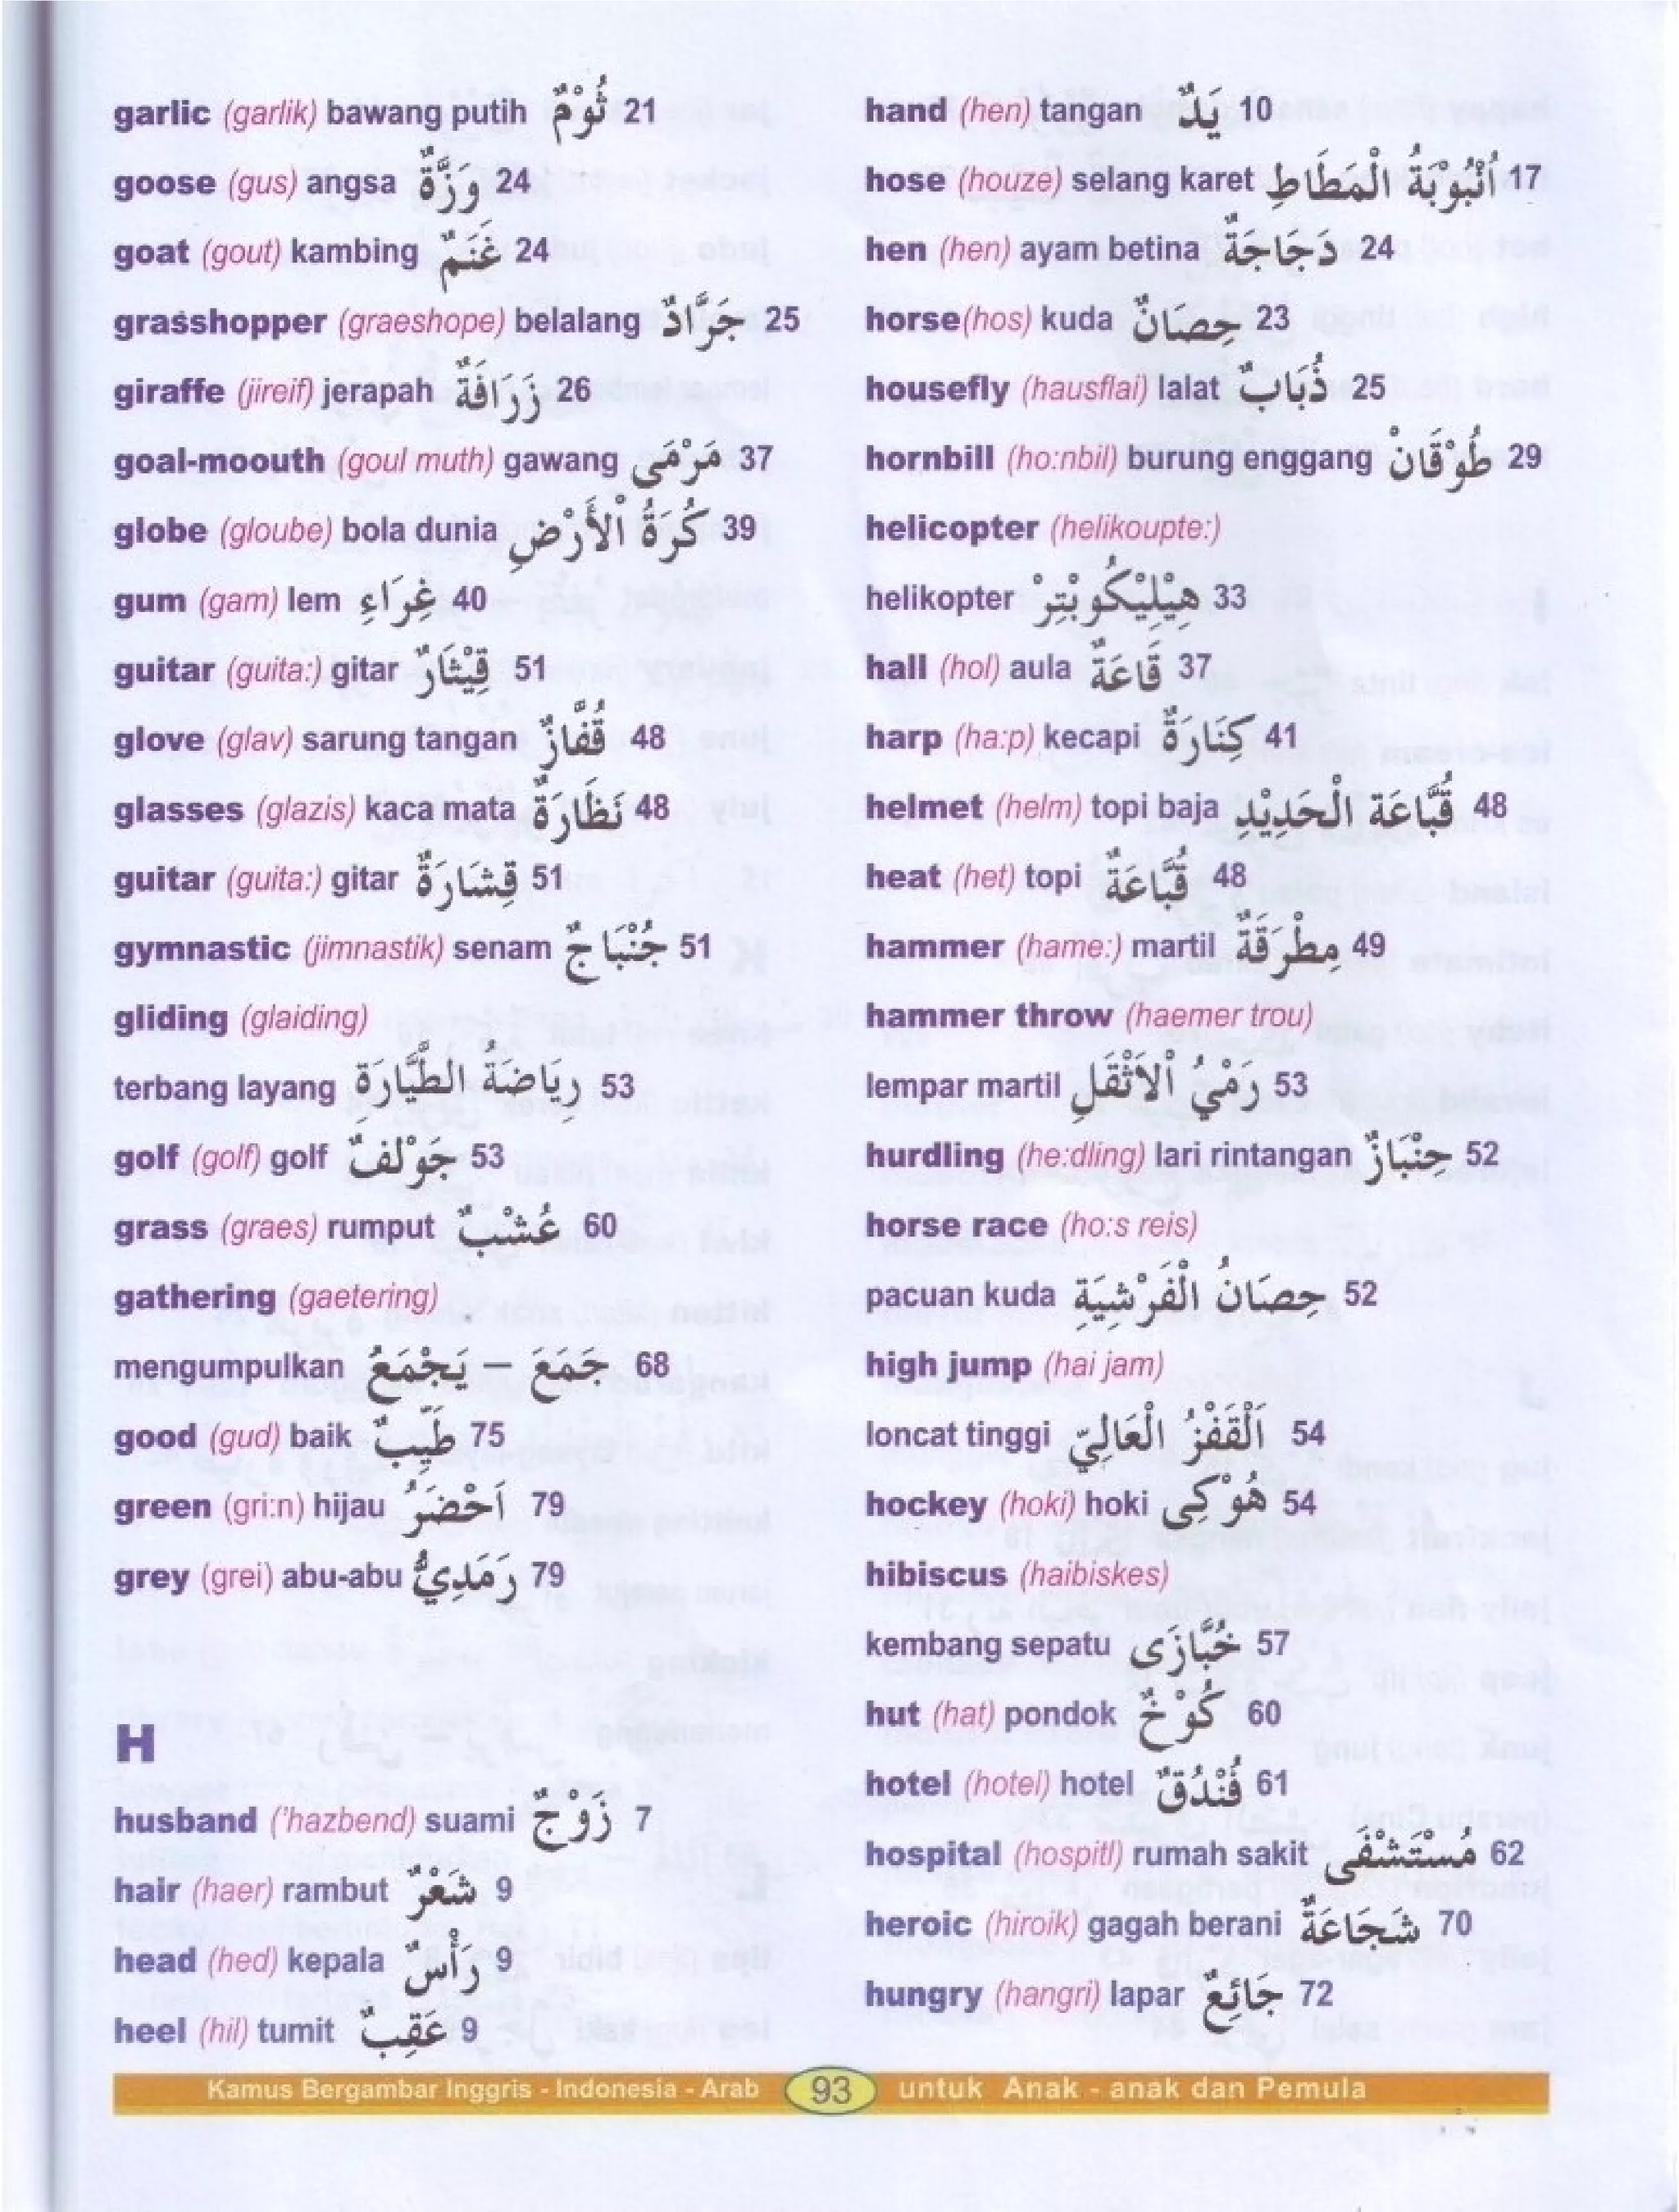 garlic (garlik) bawang putih ثُوْمٌ 21
goose (gus) angsa وِزَّةٌ 24
goat (gout) kambing غَنَمٌ 24
grasshopper (graeshope) belalang جَرَّادٌ 25
giraffe (jireif) jerapah زَرَافَةٌ 26
goal-moouth (goul muth) gawang مَرْمَى 37
globe (gloube) bola dunia كُرَةُ الْأَرْضِ 39
gum (gam) lem غِرَاءِ 40
guitar (guita:) gitar قِيْثَارٌ 51
glove (glav) sarung tangan قُفَّازٌ 48
glasses (glazis) kaca mata نَظَّارَةٌ 48
guitar (guita:) gitar قِشَارَةٌ 51
gymnastic (jimnastik) senam جُنْبَاجٌ 51
gliding (glaiding)
terbang layang رِيَاضَةُ الطَّيَّارَةِ 53
golf (golf) golf جَوْلَفٌ 53
grass (graes) rumput عُشْبٌ 60
gathering (gaetering)
mengumpulkan جَمَعَ – يَجْمَعُ 68
good (gud) baik طَيِّبٌ 75
green (gri:n) hijau اَحْضَرُ 79
grey (grei) abu-abu رَمَدِيٌّ 79
H
husband ('hazbend) suami زَوْجٌ 7
hair (haer) rambut شَعْرٌ 9
head (hed) kepala رَأْسٌ 9
heel (hil) tumit عَقِبٌ 9
hand (hen) tangan يَدٌ 10
hose (houze) selang karet اُنْبُوْبَةُ الْمَطَاطِ 17
hen (hen) ayam betina دَجَاجَةٌ 24
horse(hos) kuda حِصَانٌ 23
housefly (hausflai) lalat ذُبَابٌ 25
hornbill (ho:nbil) burung enggang طُوْقَانْ 29
helicopter (helikoupte:)
helikopter هِيْلِيْكُوبْتِرْ 33
hall (hol) aula قَاعَةٌ 37
harp (ha:p) kecapi كِنَارَةٌ 41
helmet (helm) topi baja قُبَّاعَةُ الْحَدِيْدِ 48
heat (het) topi قُبَّاعَةٌ 48
hammer (hame:) martil مِطْرَقَةٌ 49
hammer throw (haemer trou)
lempar martil رَمْيُ الْاَثْقَلِ 53
hurdling (he:dling) lari rintangan حِنْبَازٌ 52
horse race (ho:s reis)
pacuan kuda حِصَانُ الْفَرْشِيَةِ 52
high jump (hai jam)
loncat tinggi اَلْقَفْزُ الْعَالِيّ 54
hockey (hoki) hoki هُوْكِى 54
hibiscus (haibiskes)
kembang sepatu خَبَّازَى 57
hut (hat) pondok كُوْخٌ 60
hotel (hotel) hotel فُنْدُقٌ 61
hospital (hospitl) rumah sakit مُسْتَشْفَى 62
heroic (hiroik) gagah berani شَجَاعَةٌ 70
hungry (hangri) lapar جَائِعٌ 72
Kamus Bergambar Inggris - Indonesia - Arab 93 untuk Anak - anak dan Pemula